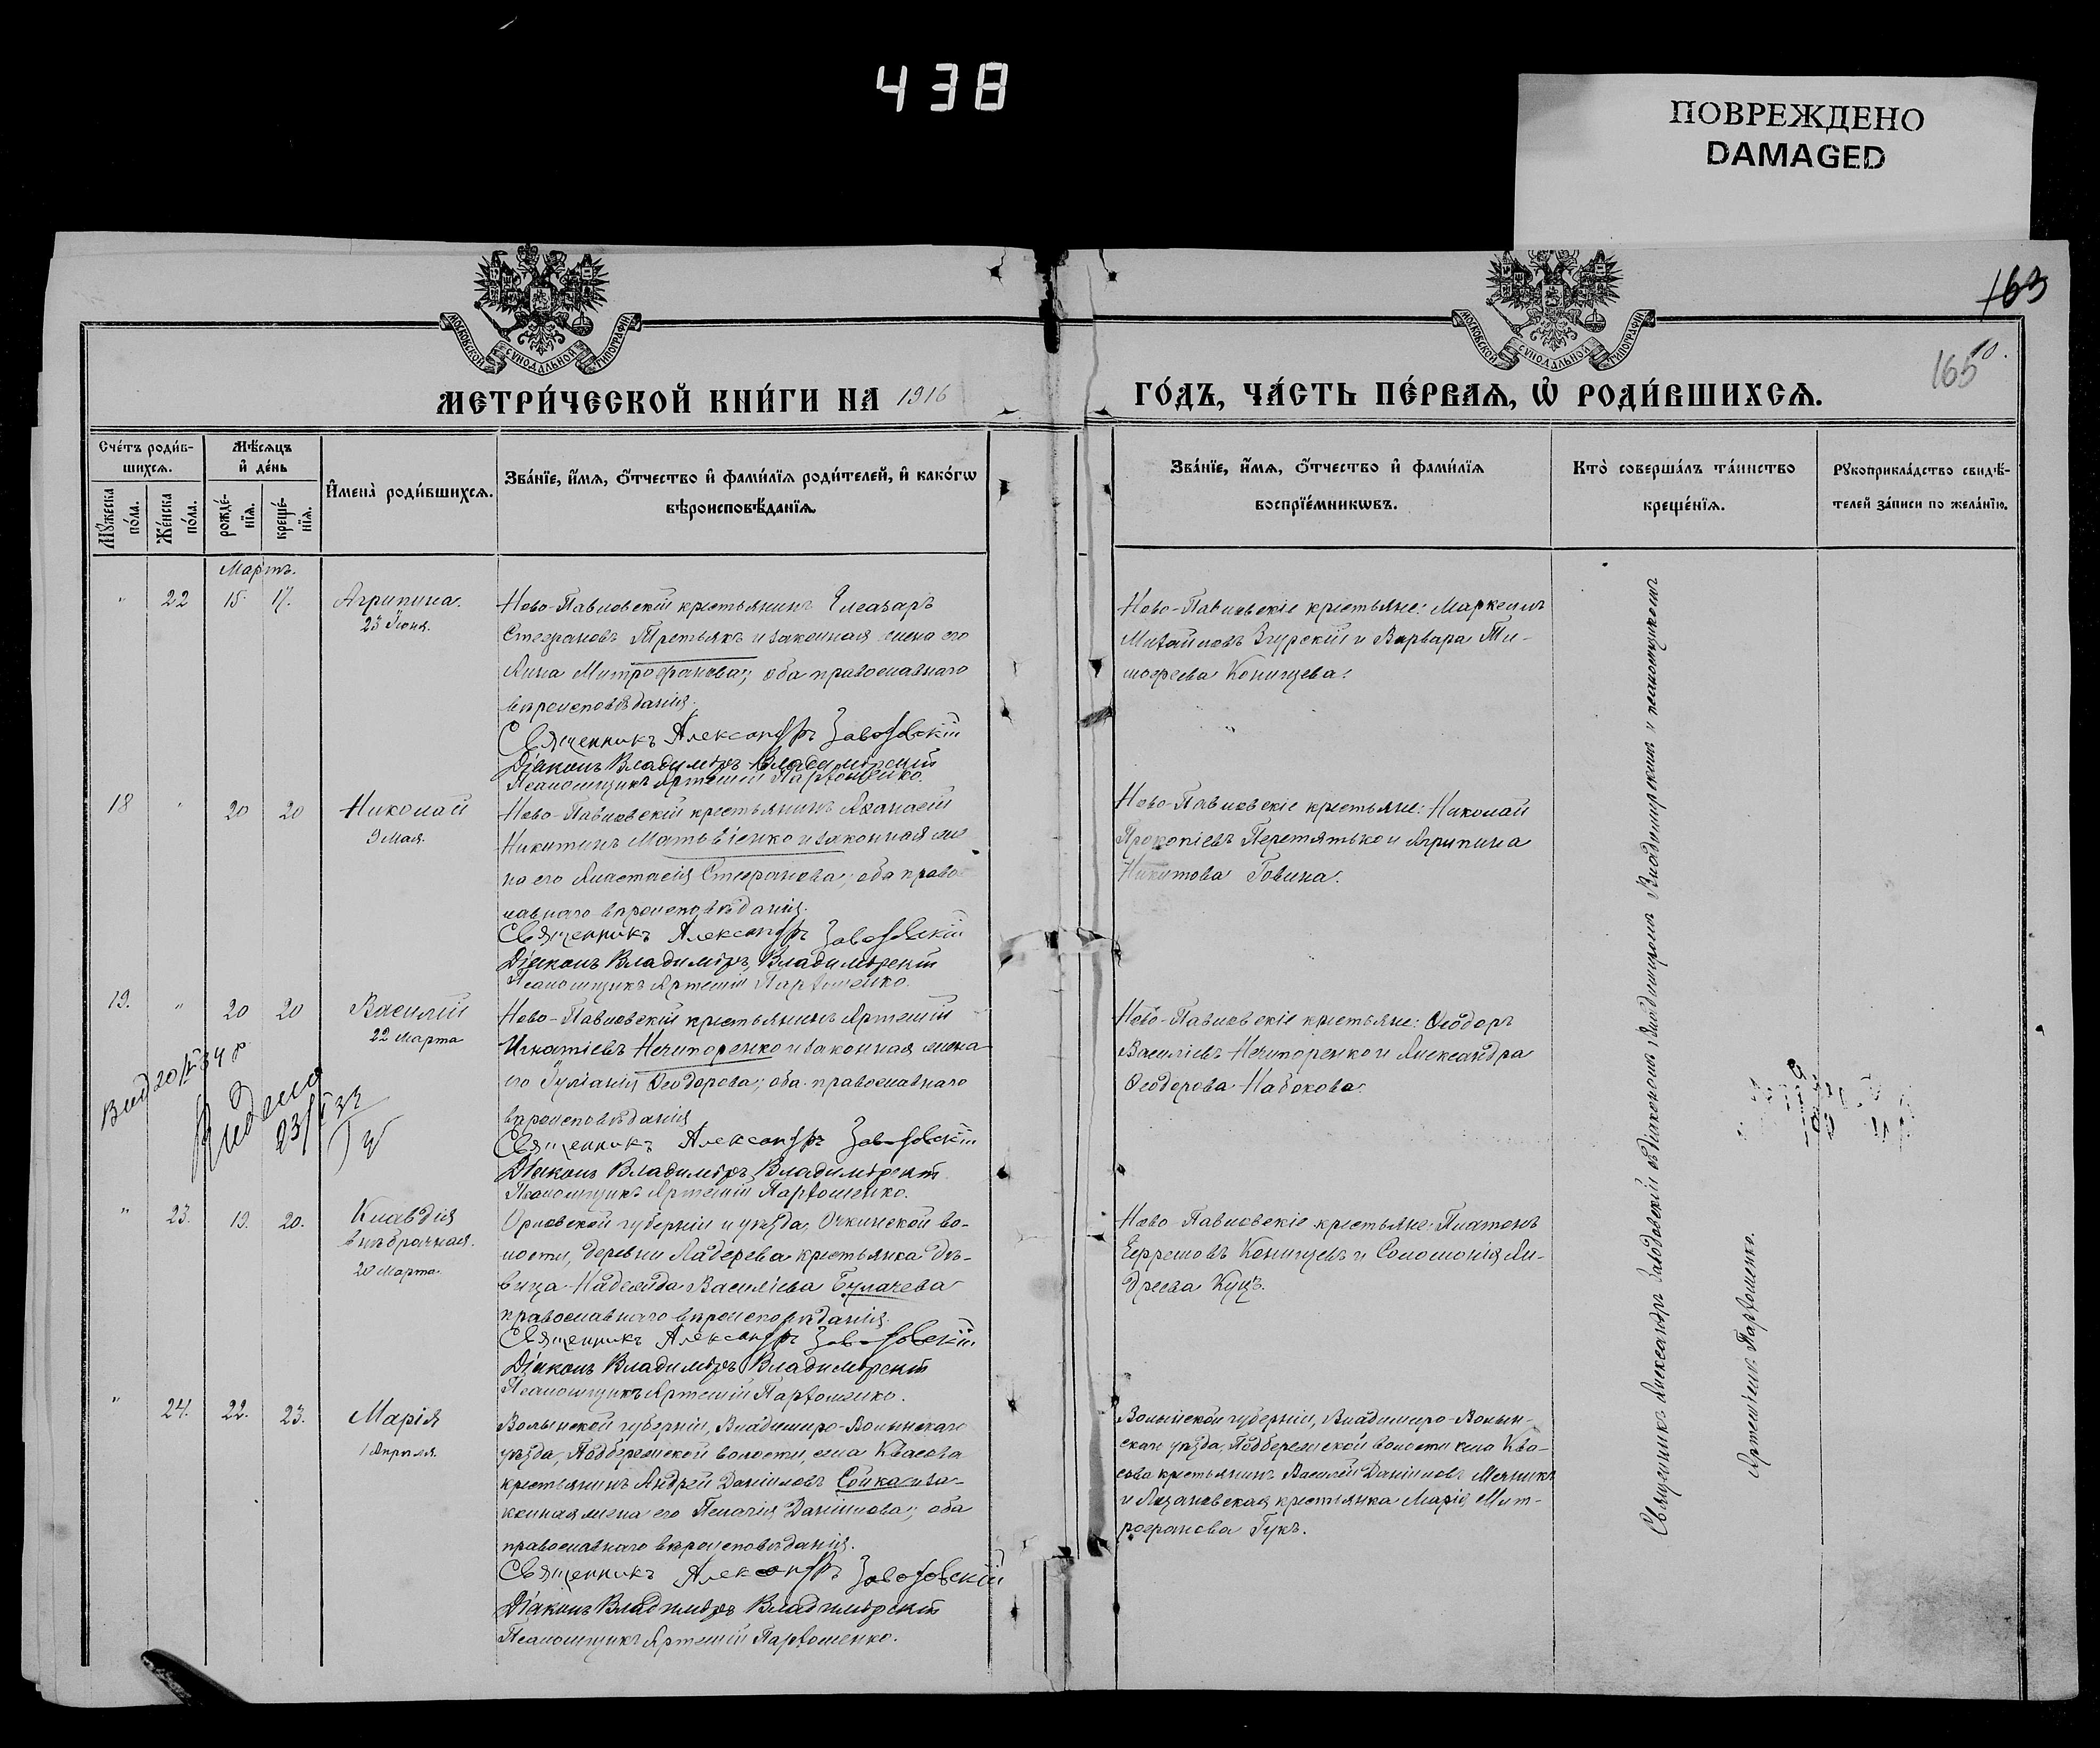 438
ПОВРЕЖДЕНО
DAMAGED
163
165
10.
МОСКОВСКОЙ СУНОДАЛЬНОЙ ТИПОГРАФІИ
МОСКОВСКОЙ СУНОДАЛЬНОЙ ТИПОГРАФІИ
МЕТРИ́ЧЕСКОЙ КНИ́ГИ НА 1916
ГО́ДЪ, ЧА́СТЬ ПЕ́РВАѦ, Ѽ РОДИ́ВШИХСѦ.
Сче́тъ роди́в-
шихсѧ.
Мꙋ́жеска по́ла.
Же́нска по́ла.
Мѣ́сѧцъ
и҆ де́нь
рожде́-
нїѧ.
креще́-
нїѧ.
И҆мена̀ роди́вшихсѧ.
Зва́нїе, и҆́мѧ, ѻ҆́тчество и҆ фами́лїѧ роди́телей, и҆ како́гѡ
вѣроисповѣ́данїѧ.
Зва́нїе, и҆́мѧ, ѻ҆́тчество и҆ фами́лїѧ
воспрїе́мникѡвъ.
Кто̀ соверша́лъ та́инство
креще́нїѧ.
Рꙋкоприкла́дство свидѣ́-
телей за́писи по жела́нїю.
Мартъ.
" 22 15. 17. Агрипина.
23 Іюня.
Ново-Павловскій крестьянинъ Елеазаръ
Стефановъ Третьякъ и законная жена его
Анна Митрофанова; оба православнаго
вѣроисповѣданія.
Священникъ Александръ Заводовскій
Діаконъ Владиміръ Владимірскій
Псаломщикъ Артемій Парѳоменко.
Ново-Павловскіе крестьяне: Маркеллъ
Михайловъ Згурскій и Варвара Ти-
мофеева Конищева.
18 " 20 20 Николай
9 Мая.
Ново-Павловскій крестьянинъ Аѳанасій
Никитинъ Матвіенко и законная же
на его Анастасія Стефанова; оба право
лавнаго вѣроисповѣданія.
Священникъ Александръ Заводовскій
Діаконъ Владиміръ Владимірскій
Псаломщикъ Артемій Парѳоменко.
Ново-Павловскіе крестьяне: Николай
Прокопіевъ Перетятько и Агрипина
Никитова Говина.
19. " 20 20 Василій
22 Марта
Ново-Павловскій крестьянинъ Артемій
Игнатіевъ Нечипоренко и законная жена
его Іуліанія Ѳеодорова; оба православнаго
вѣроисповѣданія
Священникъ Александръ Заводовскій
Діаконъ Владиміръ Владимірскій
Псаломщикъ Артемій Парѳоменко.
Ново-Павловскіе крестьяне: Ѳеодоръ
Василіевъ Нечипоренко и Александра
Ѳеодорова Набокова.
Видено
" 23. 19. 20. Клавдія
внѣбрачная.
20 Марта.
Орловской губерніи и уѣзда, Очкинской во-
лости, деревни Ладерева крестьянка дѣ-
вица Надежда Василіева Булачева
православнаго вѣроисповѣданія.
Священникъ Александръ Заводовскій
Діаконъ Владиміръ Владимірскій
Псаломщикъ Артемій Парѳоменко.
Ново-Павловскіе крестьяне: Платонъ
Ефремовъ Конищевъ и Соломонія Ан-
дреева Куцъ.
" 24. 22. 23. Марія
1 Апрѣля.
Волынской губерніи, Владиміро-Волынскаго
уѣзда, Подбережской волости, села Квасова
крестьянинъ Андрей Даніиловъ Сойка и за-
конная жена его Пелагія Даніилова; оба
православнаго вѣроисповѣданія.
Священникъ Александръ Заводовскій
Діаконъ Владиміръ Владимірскій
Псаломщикъ Артемій Парѳоменко.
Волынской губерніи, Владиміро-Волын-
скаго уѣзда, Подбережской волости села Ква-
сова крестьянинъ Василій Даніиловъ Мечникъ
и Лазановская крестьянка Марія Мит-
рофанова Гукъ.
Священникъ Александръ Заводовскій съ діакономъ Владиміромъ Владимірскимъ и псаломщикомъ
Артеміемъ Парѳоменко.